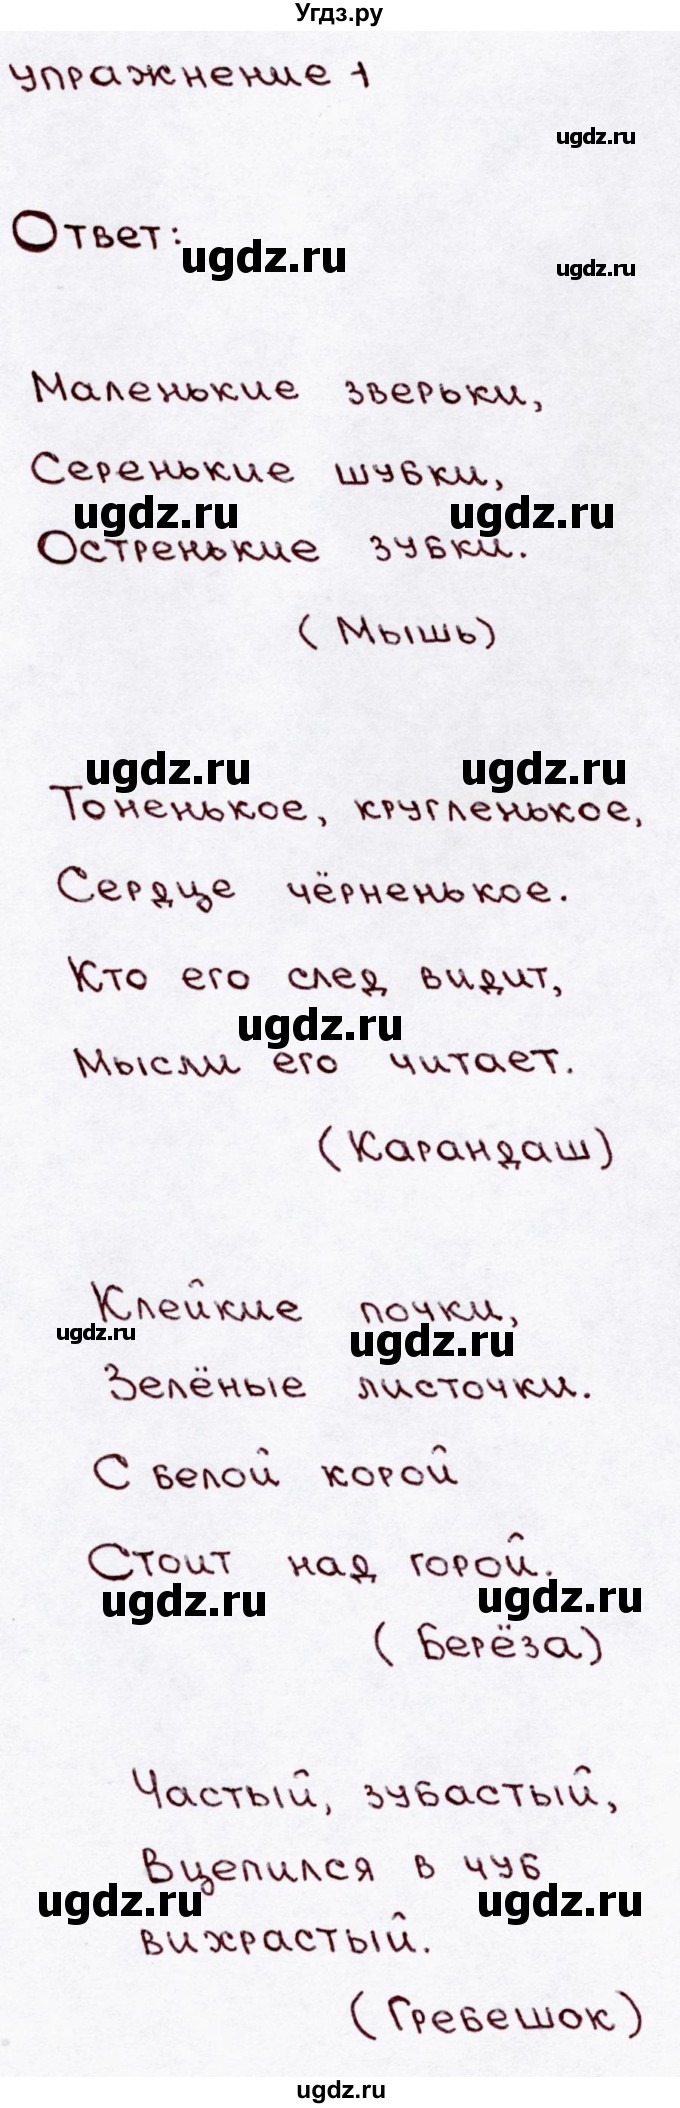 Угдз.ру
упражнение 1
ugdz.ru
Ответ:
ugdz.ru
ugdz.ru
Маленькие зверьки,
Серенькие шубки,
ugdz.ru ugdz.ru
Остренькие зубки.
(Мышь)
ugdz.ru ugdz.ru
Тоненькое, кругленькое,
Сердце чёрненькое.
Кто его след видит,
ugdz.ru
Мысли его читает.
(Карандаш)
Клейкие почки,
ugdz.ru ugdz.ru
Зелёные листочки.
С белой корой
Стоит над горой.
ugdz.ru ugdz.ru
(Берёза)
Частый, зубастый,
Вцепился в чуб
ugdz.ru ugdz.ru
вихрастый.
(Гребешок)
ugdz.ru